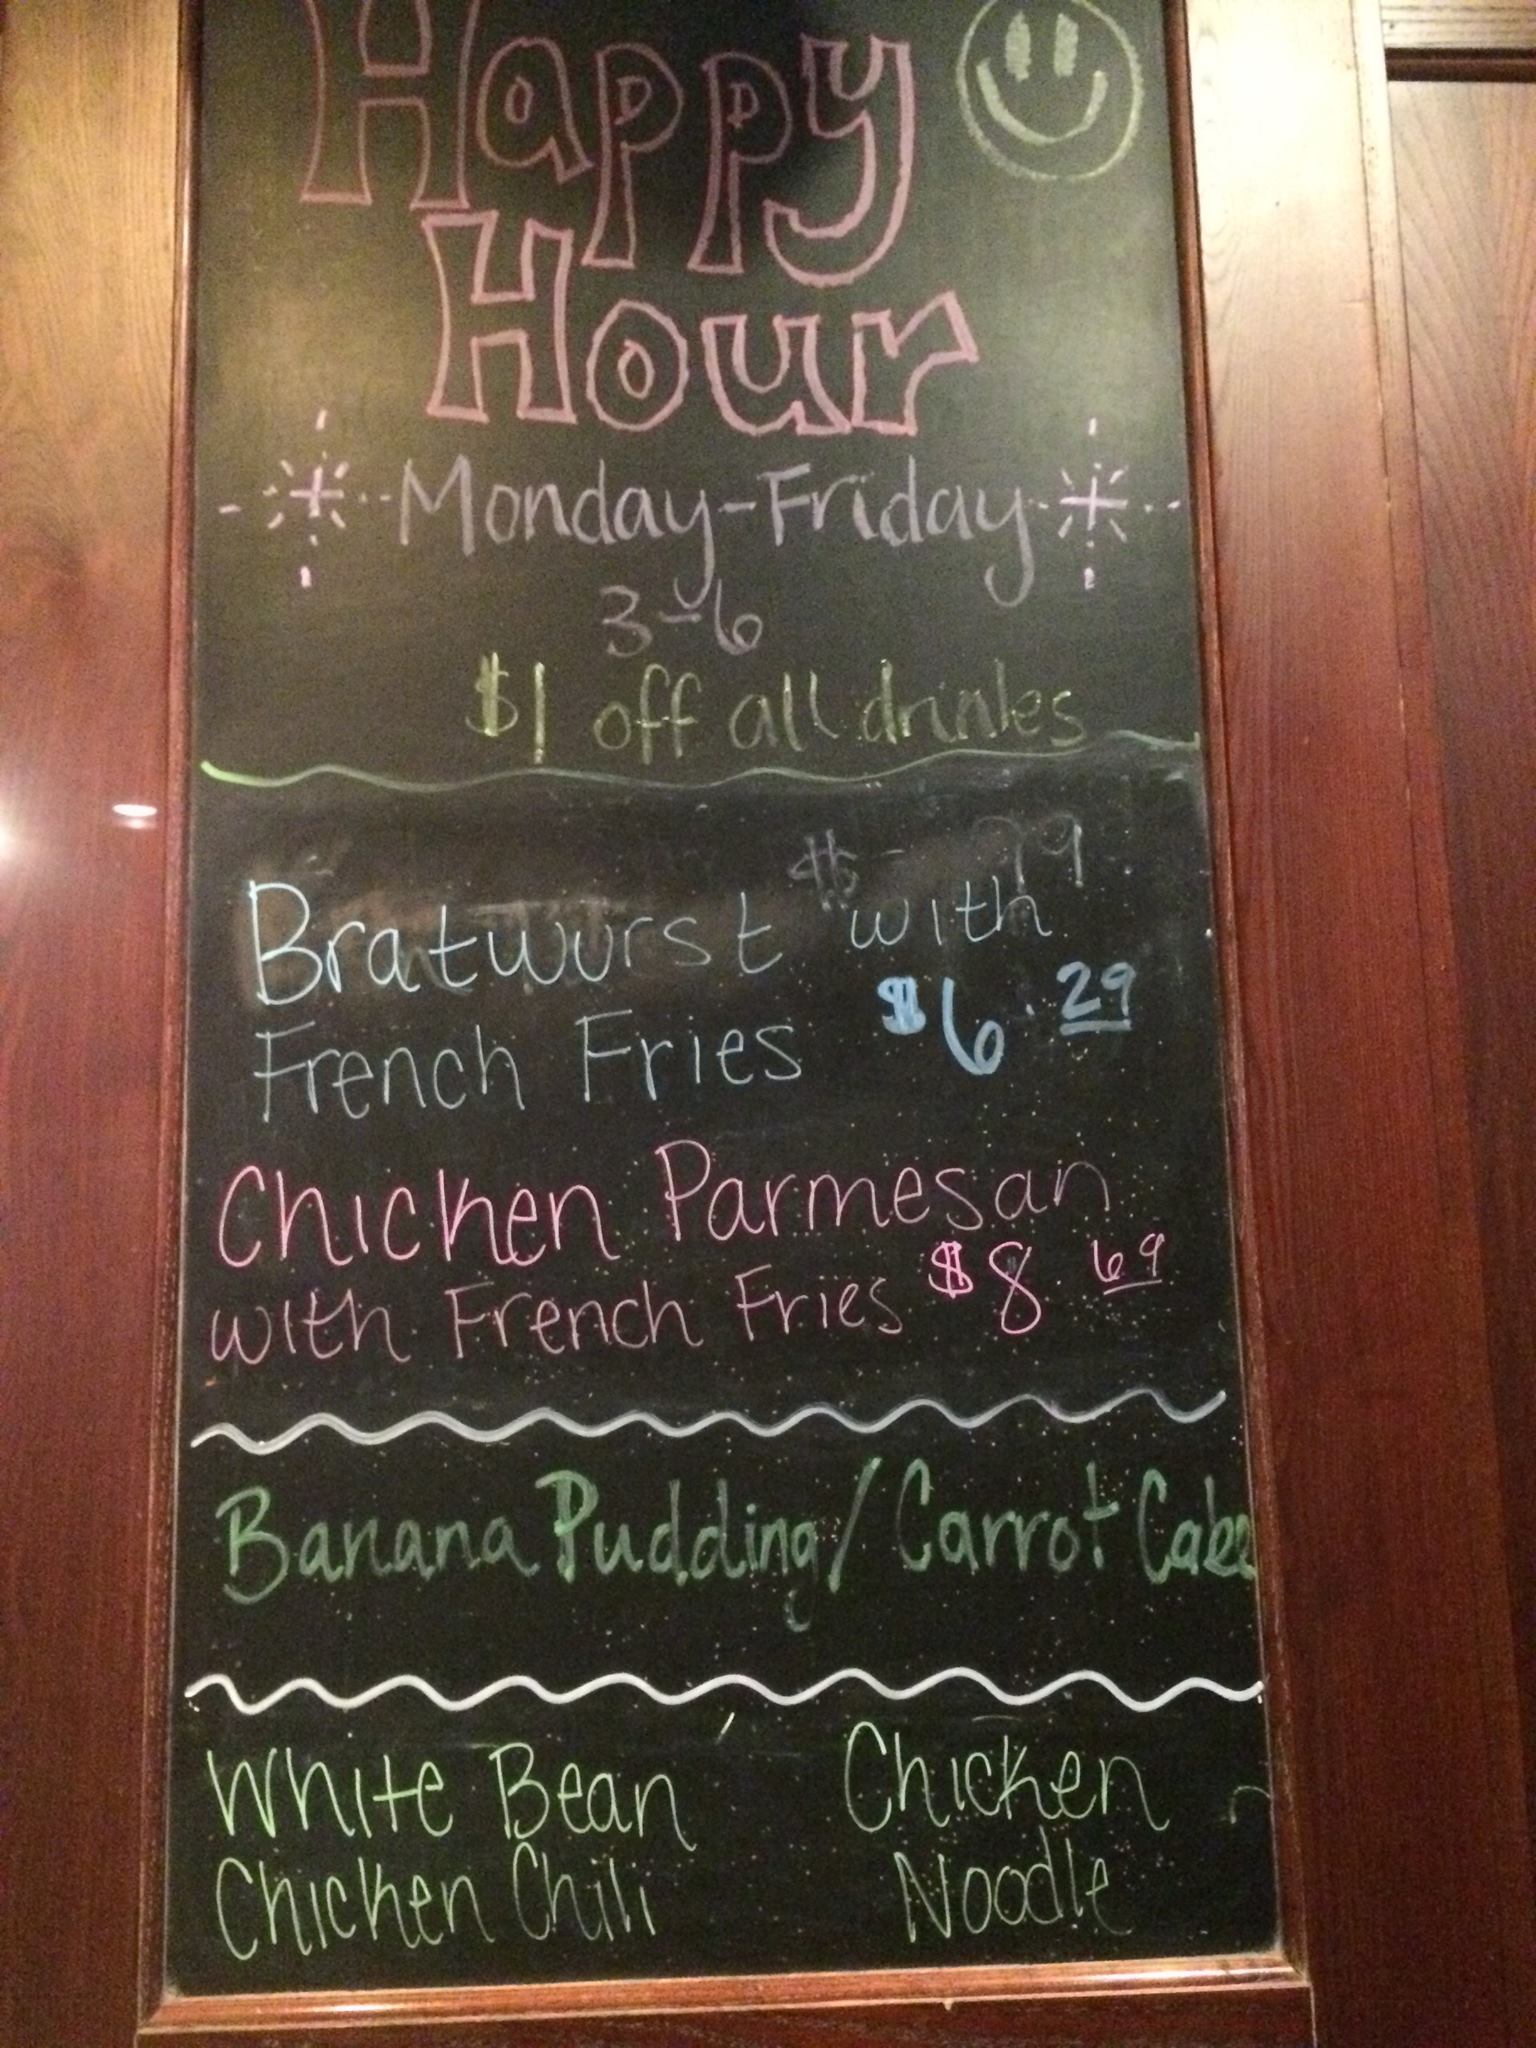 Happy
Hour
Monday-Friday
3-6
$1 off all drinks
Bratwurst with
French Fries $6.29
Chicken Parmesan
with French Fries $8 69
Banana Pudding / Carrot Cake
White Bean Chicken
Chicken Chili Noodle